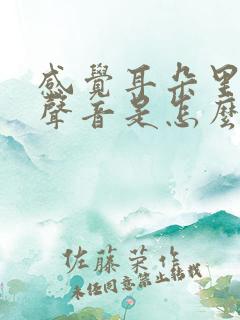 感覺耳朵里
聲音是怎麼
佐藤菜作
未经同意禁止转载